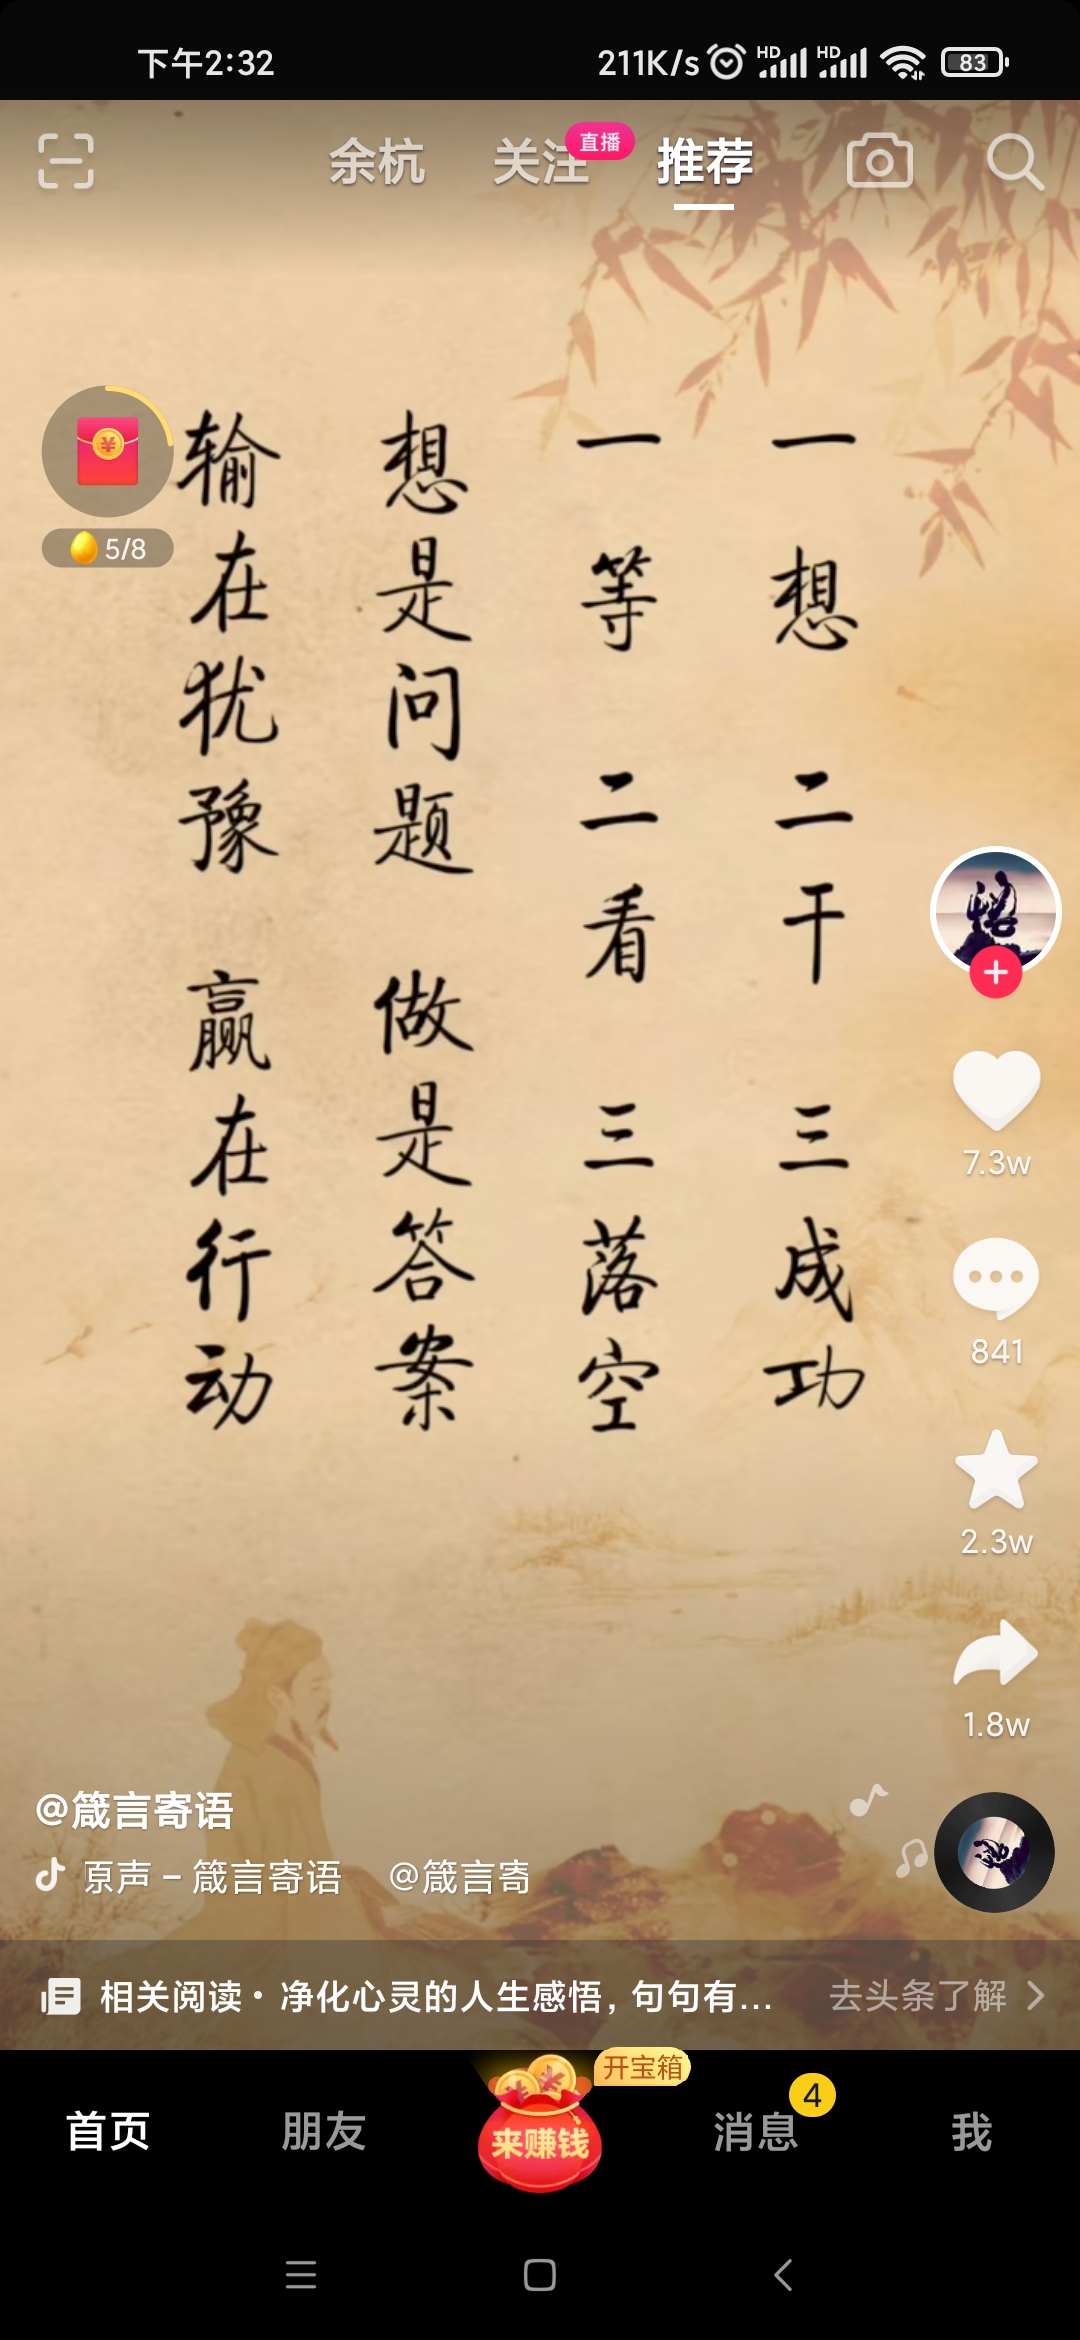 下午2:32
211K/s HD HD 83
余杭 关注 直播 推荐
5/8
一想 二干 三成功
一等 二看 三落空
想是问题 做是答案
输在犹豫 赢在行动
7.3w
841
2.3w
1.8w
@箴言寄语
原声 - 箴言寄语 @箴言寄
相关阅读·净化心灵的人生感悟，句句有... 去头条了解
首页 朋友 来赚钱 开宝箱 消息 4 我